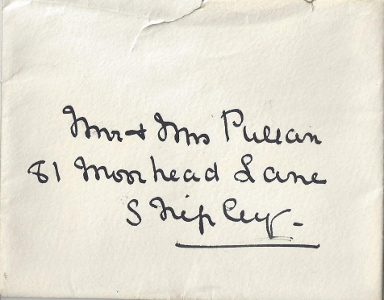 Mr & Mrs Pullan
81 Moorhead Lane
Shipley.